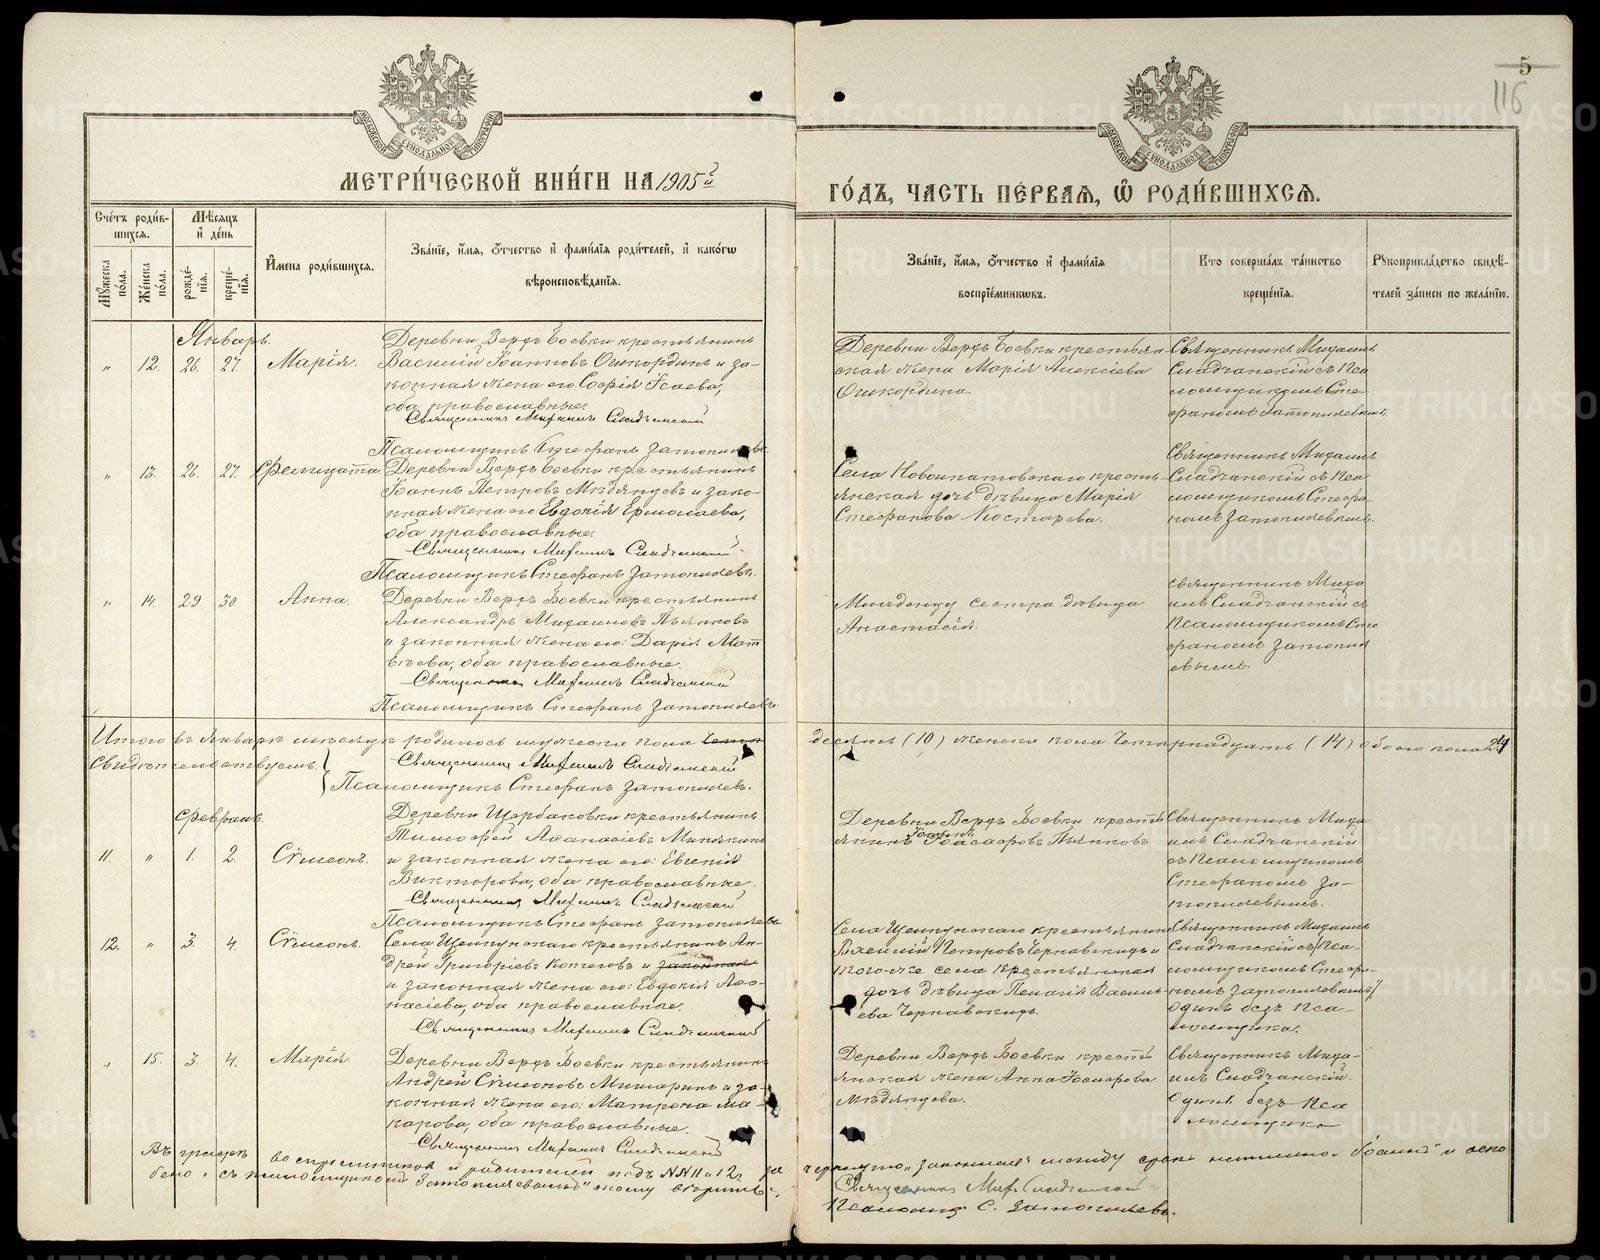 5
116
МЕТРИ́ЧЕСКОЙ КНИ́ГИ НА 1905 й
ГО́ДЪ, ЧАСТЬ ПЕ́РВАЯ, Ѡ҆ РОДИ́ВШИХСЯ.
Сче́тъ роди́в-
шихся.
Мѣ́сяцъ
и҆ де́нь
Мꙋ́жеска
по́ла.
Же́нска
по́ла.
рожде́-
нїѧ.
креще́-
нїѧ.
И҆мена роди́вшихся.
Зва́нїе, и҆́мя, ѻ҆́тчество и҆ фами́лїя роди́телей, и҆ како́гѡ
вѣроисповѣ́данїя.
Зва́нїе, и҆́мя, ѻ҆́тчество и҆ фами́лїя
воспрїе́мникѡвъ.
Кто соверша́лъ та́инство
креще́нїя.
Рꙋкоприкла́дство свидѣ́-
телей за́писи по жела́нїю.
Январь.
" 12. 26. 27. Марія.
Деревни Верхъ Боевки крестьянинъ
Василій Іоанновъ Ошкординъ и за-
конная жена его Софія Исаева,
оба православные.
Священникъ Михаилъ Сладчанскій
Псаломщикъ Стефанъ Затопляевъ
Деревни Верхъ Боевки крестьян-
ская жена Марія Алексіева
Ошкордина.
Священникъ Михаилъ
Сладчанскій съ Пса
ломщикомъ Сте-
фаномъ Затопляевымъ.
" 13. 26. 27. Фелицата.
Деревни Верхъ Боевки крестьянинъ
Іоаннъ Петровъ Мѣдянцевъ и зако-
нная жена его Евдокія Ермолаева,
оба православные.
Священникъ Михаилъ Сладчанскій
Псаломщикъ Стефанъ Затопляевъ.
Села Новоипатовскаго кресть-
янская дочь дѣвица Марія
Стефанова Костарева.
Священникъ Михаилъ
Сладчанскій съ Пса
ломщикомъ Стефа-
номъ Затопляевымъ.
" 14. 29. 30. Анна.
Деревни Верхъ Боевки крестьянинъ
Александръ Михаиловъ Пьянковъ
и законная жена его: Дарія Мат
вѣева, оба православные.
Священникъ Михаилъ Сладчанскій
Псаломщикъ Стефанъ Затопляевъ.
Младенцу сестра дѣвица
Анастасія.
Священникъ Миха
илъ Сладчанскій съ
Псаломщикомъ Сте
фаномъ Затопля
евымъ.
Итого въ Январѣ мѣсяцѣ родилось мужеска пола десять (10) женска пола четырнадцать (14) обоего пола 24
Свидѣтельствуемъ:
Священникъ Михаилъ Сладчанскій
Псаломщикъ Стефанъ Затопляевъ.
Февраль.
11. " 1. 2. Сѵмеонъ.
Деревни Щербаковки крестьянинъ
Тимофей Афанасіевъ Минякинъ
и законная жена его: Евгенія
Викторова, оба православные.
Священникъ Михаилъ Сладчанскій
Псаломщикъ Стефанъ Затопляевъ
Деревни Верхъ Боевки кресть
янинъ Іоаннъ Іоасафовъ Пьянковъ
Священникъ Миха
илъ Сладчанскій
съ Псаломщикомъ
Стефаномъ За-
топляевымъ.
12. " 3. 4. Сѵмеонъ.
Села Щелкунскаго крестьянинъ Ан-
дрей Григоріевъ Котеговъ и законная
и законная жена его: Евдокія Афо-
насіева, оба православные.
Священникъ Михаилъ Сладчанскій
Села Щелкунскаго крестьянинъ
Василій Петровъ Чернавскихъ и
того-же села крестьянская
дочь дѣвица Пелагія Василь-
ева Чернавскихъ.
Священникъ Михаилъ
Сладчанскій съ Пса-
ломщикомъ Стефа-
номъ Затопляевымъ
Одинъ безъ Пса-
ломщика.
" 15. 3. 4. Марія
Деревни Верхъ Боевки крестьянинъ
Андрей Сѵмеоновъ Мишаринъ и за-
конная жена его: Матрона Ма-
карова, оба православные.
Священникъ Михаилъ Сладчанскій
Деревни Верхъ Боевки кресть
янская жена Анна Іосифова
Мѣдянцева.
Священникъ Миха-
илъ Сладчанскій.
Одинъ безъ Пса
ломщика
Въ графѣ воспріемниковъ и родителей подъ №№ 11 и 12, за
черкнуто „законная" между строкъ написано „Іоаннъ" и
„съ псаломщикомъ Затопляевымъ" тому вѣрить.
Священникъ Мих. Сладчанскій
Псаломщ. С. Затопляевъ.
METRIKI.GASO-URAL.RU